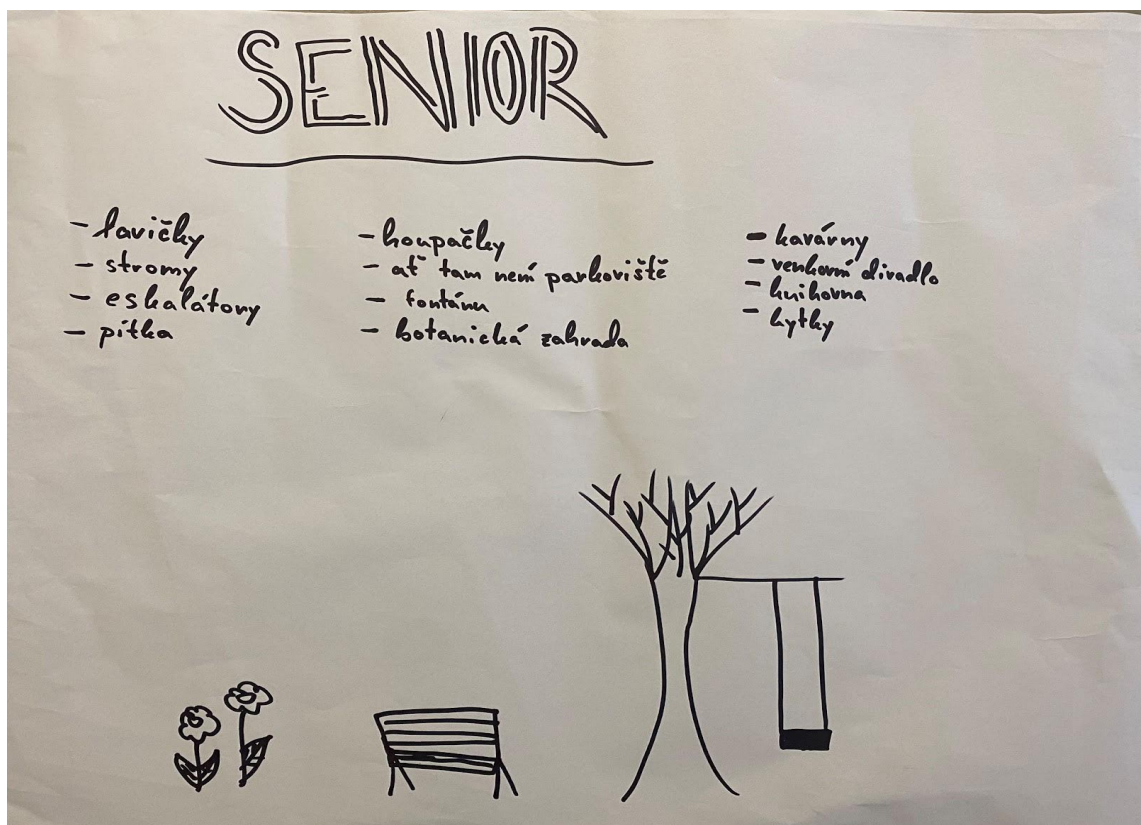 SENIOR
- lavičky
- stromy
- eskalátory
- pítka
- houpačky
- ať tam není parkoviště
- fontánu
- botanická zahrada
- kavárny
- venkovní divadlo
- knihovna
- kytky